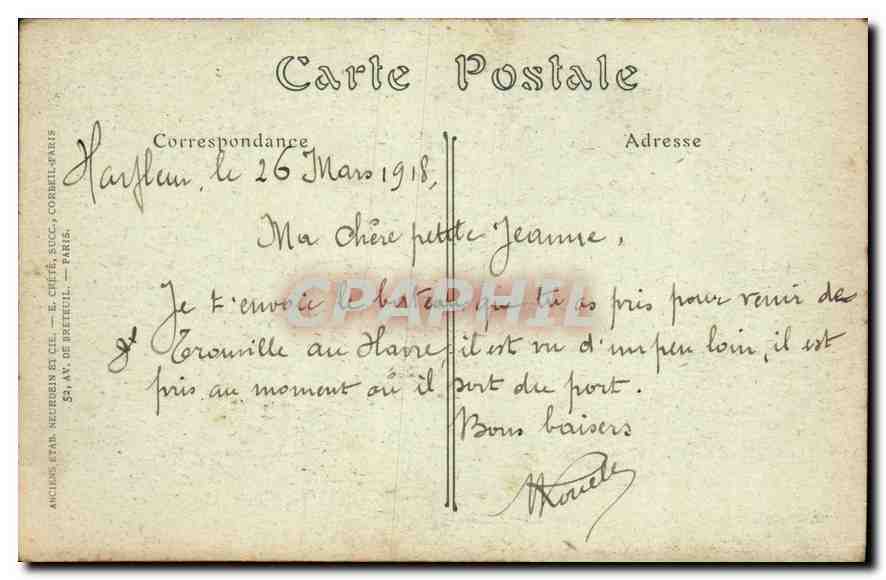 Carte Postale
Correspondance
Adresse
Harfleur, le 26 Mars 1918,
Ma chère petite Jeanne,
Je t'envoie le bateau que tu as pris pour venir de
Trouville au Havre, il est vu d'un peu loin, il est
pris au moment où il sort du port.
Bons baisers
ANCIENS ETAB. NEURDEIN ET CIE. — E. CRÉTÉ, SUCC., CORBEIL-PARIS
52, AV. DE BRETEUIL. — PARIS.
CPAPHIL